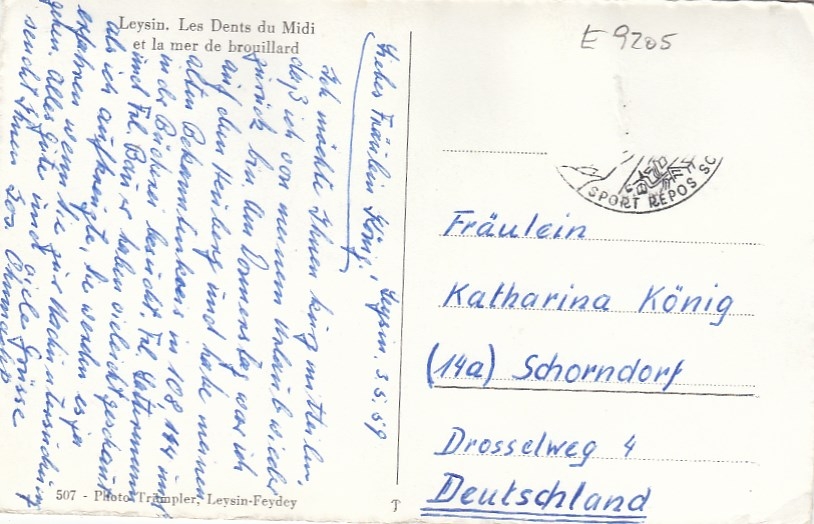 Leysin. Les Dents du Midi
et la mer de brouillard
Liebes Fräulein König! Leysin. 3.5.59
Ich möchte Ihnen kurz mitteilen,
daß ich von meinem Urlaub wieder
zurück bin. Am Donnerstag war ich
auf dem Heuberg und habe meinen
alten Bekanntenkreis in 108 144 und
in der Bücherei besucht. Frl.
und Frl. Bauer haben vielleicht geschaut
als ich aufkreuzte. Sie werden es ja
erfahren wenn Sie zur Nachuntersuchung
gehen. Alles Gute und viele Grüsse
sendet Ihnen
507 - Photo Trümpler, Leysin-Feydey
E 9205
SPORT REPOS SO
Fräulein
Katharina König
(14a) Schorndorf
Drosselweg 4
Deutschland